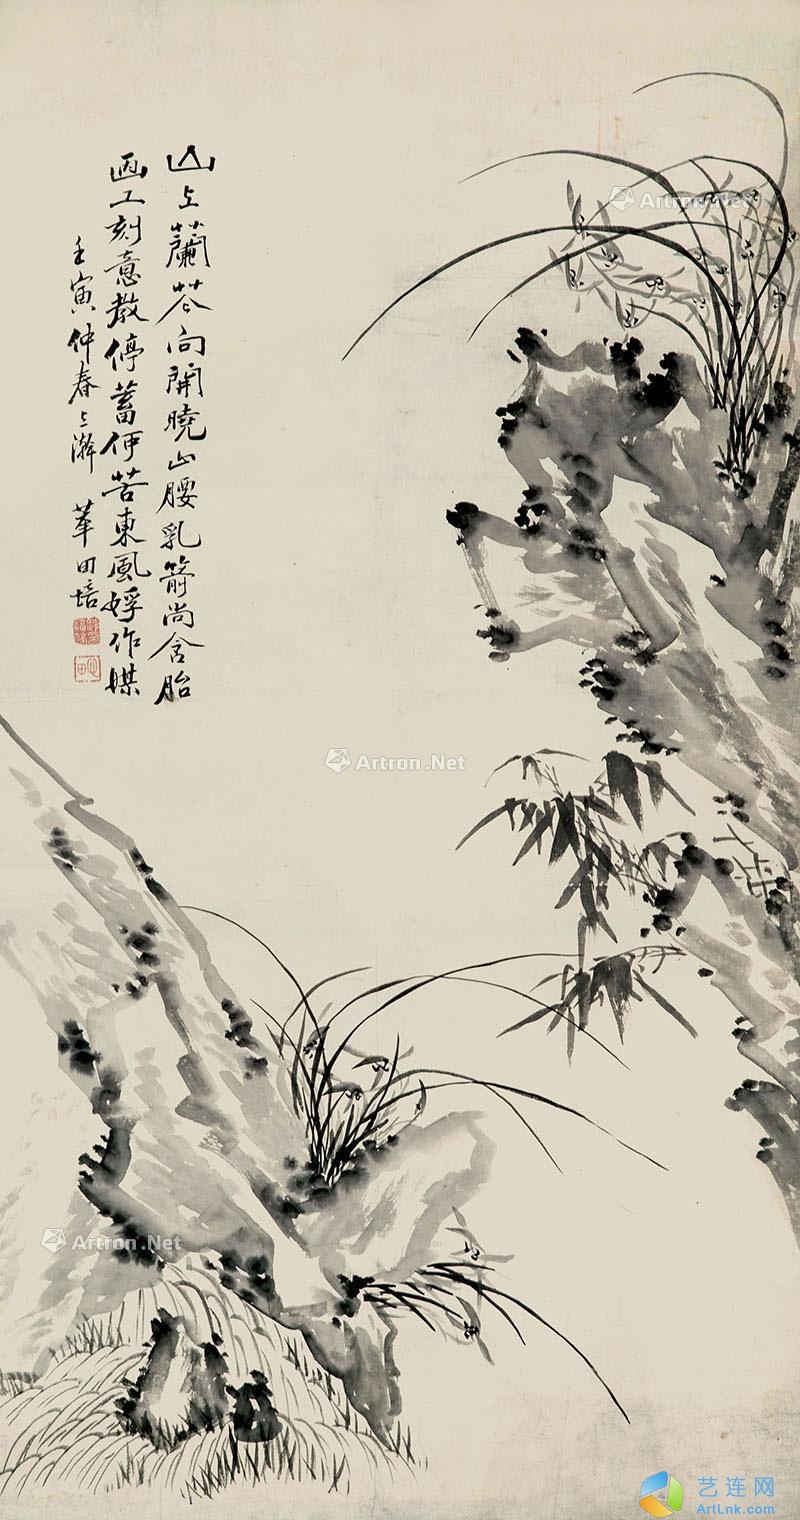 山上蘭芲向開曉山腰乳箭尚含胎
画工刻意教停蓄何苦東風好作媒
壬寅仲春上澣 莘田培
Artron.Net
Artron.Net
Artron.Net
艺连网
ArtLnk.com